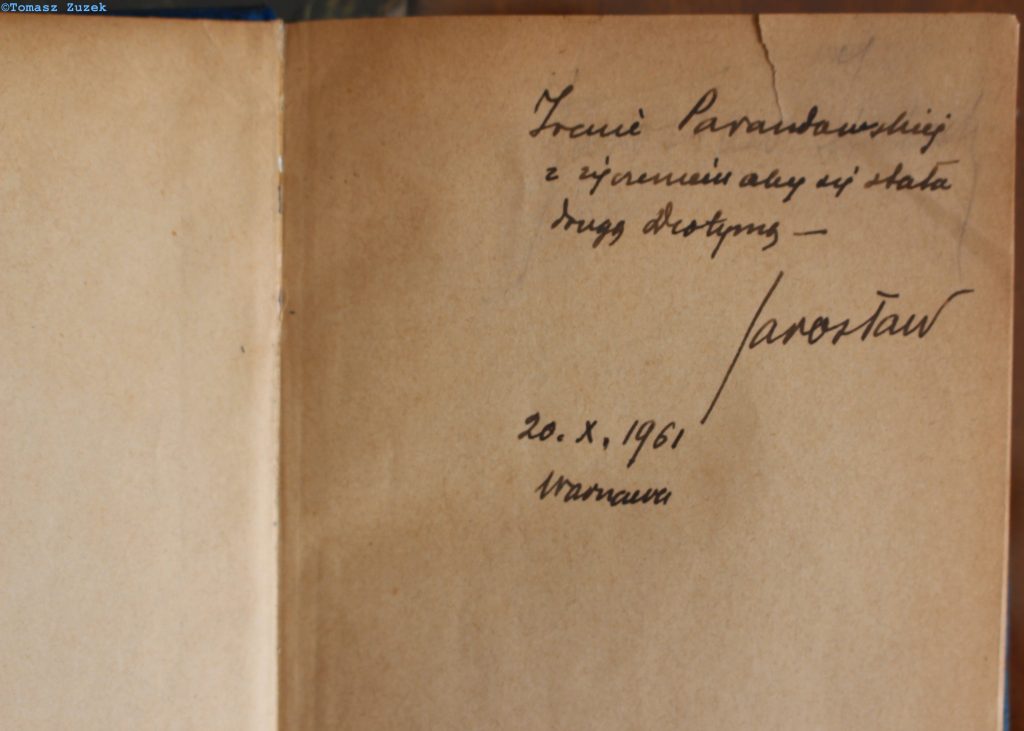 ©Tomasz Zuzek
Irenie Parandowskiej
z życzeniem aby się stała
drugą Diotymą —
Jarosław
20. X. 1961
Warszawa